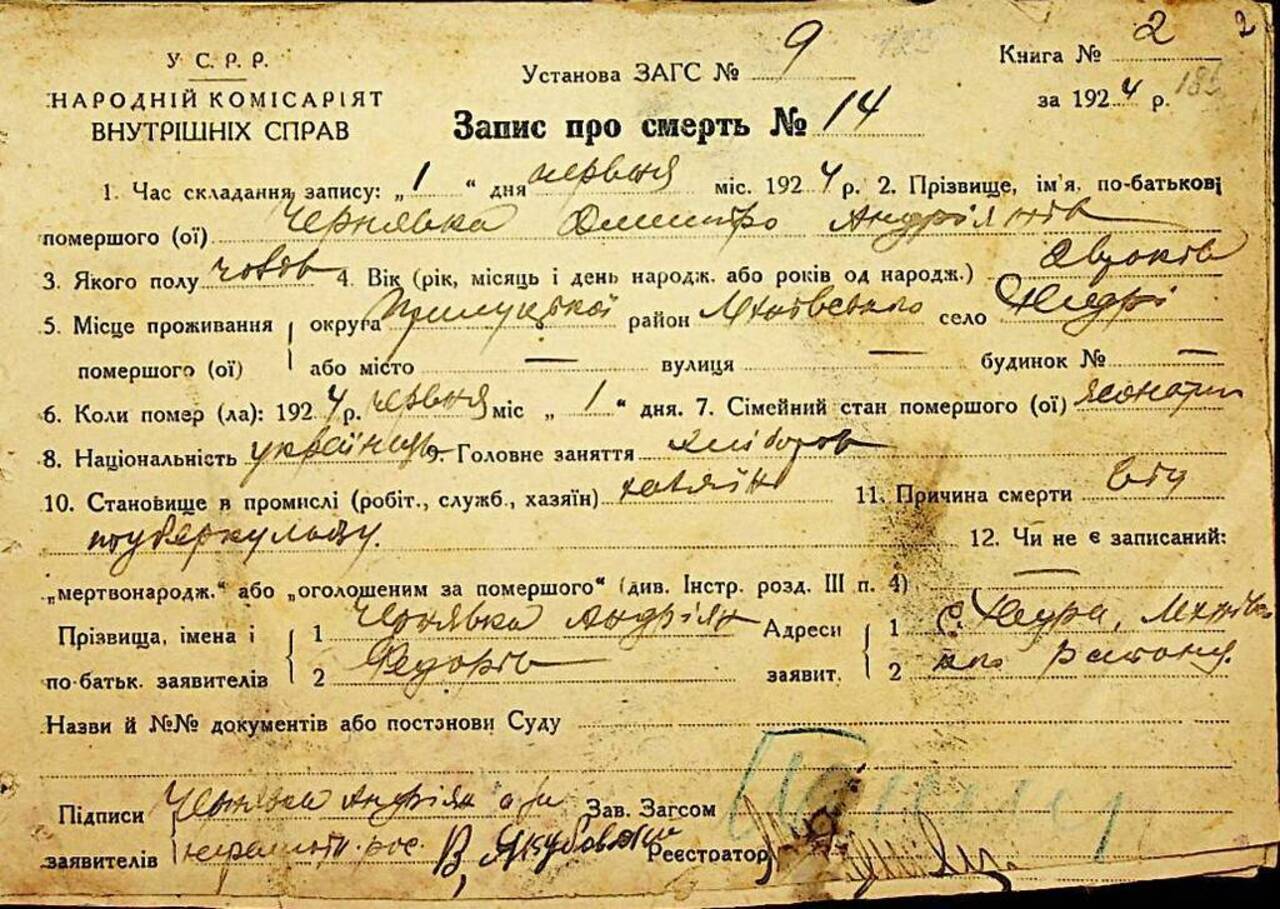 2 2
У. С. Р. Р. Установа ЗАГС № 9 Книга №
НАРОДНІЙ КОМІСАРІЯТ за 1924 р.
ВНУТРІШНІХ СПРАВ Запис про смерть № 14
1. Час складання запису: „1“ дня червня міс. 1924 р. 2. Прізвище, ім'я, по-батькові
помершого (ої) Чернявка Дмитро Андріянів
3. Якого полу чолов 4. Вік (рік, місяць і день народж. або років од народж.)
5. Місце проживання округа Прилуцької район село
помершого (ої) або місто — вулиця — будинок № —
6. Коли помер (ла): 1924 р. червня міс „1“ дня. 7. Сімейний стан помершого (ої)
8. Національність українець 9. Головне заняття хлібороб
10. Становище в промислі (робіт., служб., хазяїн) хазяїн 11. Причина смерти від
туберкульозу. 12. Чи не є записаний:
„мертвонародж.“ або „оголошеним за помершого“ (див. Інстр. розд. III п. 4) —
Прізвища, імена і 1 Чернявка Андріян Адреси 1 С.
по-батьк. заявителів 2 Федорів заявит. 2 району.
Назви й №№ документів або постанови Суду
Підписи Чернявка Андріян Зав. Загсом
заявителів неграмотн. рос. В. Якубовський Реєстратор